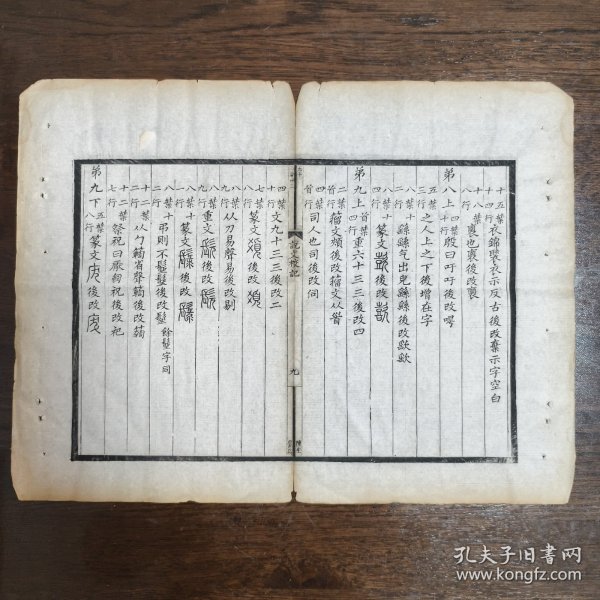 十五葉十四行 衣錦褧衣示反古後改 示字空白
十八葉八行 褱也裹後改褱
第八上 四葉十行 殷曰吁吁後改呼
五葉三行 之人上之下後增在字
八葉二行 欯欯气出皃
八葉十四行 篆文 後改
第九上 首葉四行 重六十三三後改四
二葉首行 籀文頌後改籀文从𦣻
四葉首行 司人也司後改伺
說文 記
九
四葉十行 文九十三三後改二
八葉七行 篆文 後改
八葉九行 从刀易聲易後改剔
八葉九行 重文 後改
八葉十一行 篆文 後改
八葉十二行 弔則不髽髽後改髽餘髽字同
十二葉二行 从勹 省聲 後改
十二葉七行 祭祝曰厭匔祝後改祀
第九下 五葉八行 篆文 後改
孔夫子旧书网
www.kongfz.com